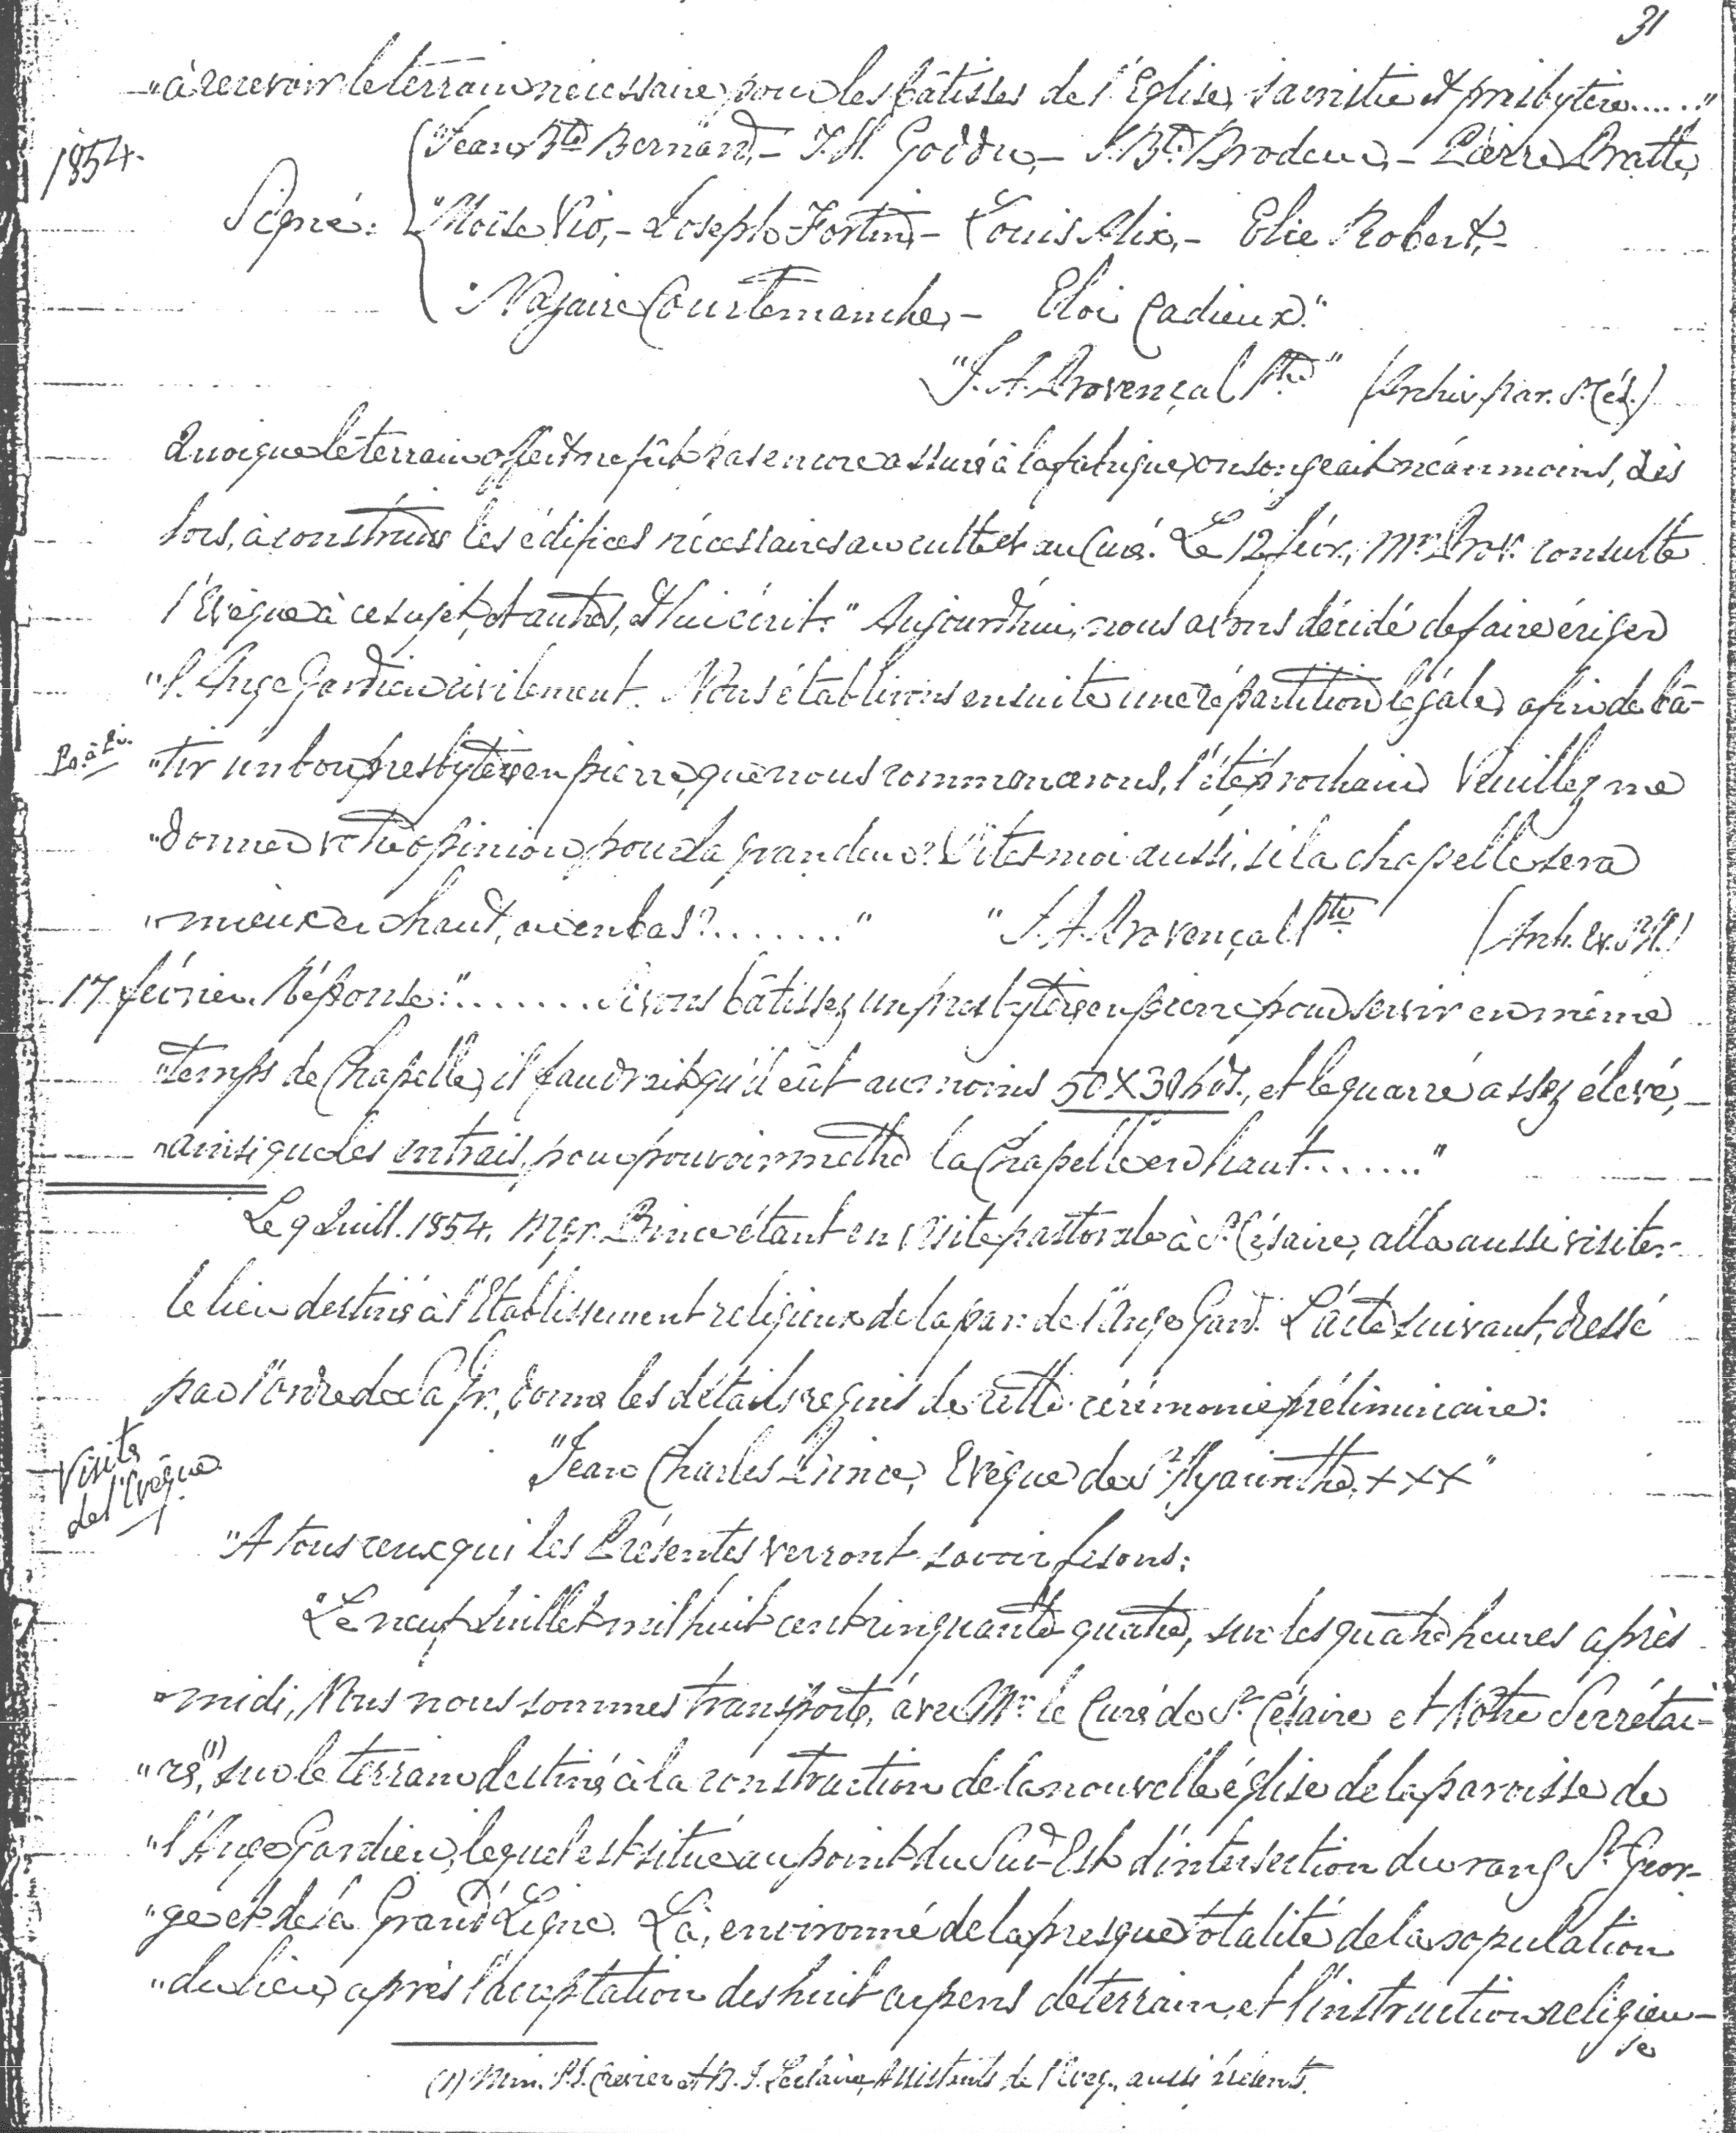 31
"à recevoir le terrain nécessaire pour les bâtisses de l'Eglise, sacristie et presbytère....."
1854.
"Jean Bte Bernard, – J. H. Goddu, – J. Bte Brodeur, – Pierre Bratte,
Signé: "Moïse Vio, – Joseph Fortin, – Louis Alix, – Elie Robert, –
"Nazaire Courtemanche, – Eloi Cadieux."
"J. A. Provençal Ptre" (Archiv. par. St Cés.)
Quoique le terrain offert ne fût pas encore assuré à la fabrique, on songeait néanmoins, dès
lors, à construire les édifices nécessaires au culte et au Curé. Le 12 févr., Mr Prov. consulte
l'Evêque à ce sujet, et autres, et lui écrit: "Aujourd'hui, nous avons décidé de faire ériger
"l'Ange Gardien civilement. Nous établirons ensuite une répartition légale, afin de bâ-
"tir un bon presbytère en pierre, que nous commencerons, l'été prochain. Veuillez me
"donner votre opinion pour la grandeur? Dites moi aussi, si la chapelle sera
"mieux en haut, ou en bas?......." "J. A. Provençal Ptre (Arch. Ev. St H.)
17 février. Réponse: "....... Si vous bâtissez un presbytère en pierre pour servir en même
"temps de Chapelle, il faudrait qu'il eût au moins 50 X 30 pds., et le quarré assez élevé,
"ainsi que les entraits, pour pouvoir mettre la Chapelle en haut......."
Le 9 Juill. 1854. Mgr. Prince étant en visite pastorale à St Césaire, alla aussi visiter
le lieu destiné à l'Etablissement religieux de la par. de l'Ange Gard. L'acte suivant, dressé
par l'ordre de Sa Gr., donne les détails requis de cette cérémonie préliminaire:
Visite
de l'Evêque.
"Jean Charles Prince, Evêque de St Hyacinthe, + + +"
"A tous ceux qui les Présentes verront savoir fesons:
"Le neuf Juillet mil huit cent cinquante quatre, sur les quatre heures après
"midi, Nous nous sommes transporté, avec Mr le Curé de St Césaire et Notre Secrétai-
"re,(1) sur le terrain destiné à la construction de la nouvelle église de la paroisse de
"l'Ange Gardien, lequel est situé au point du Sud-Est d'intersection du rang St Geor-
"ge et de la Grand'Ligne. Là, environné de la presque totalité de la population
"du lieu, après l'acceptation des huit arpens de terrain, et l'instruction religieu-
se
(1) Mm. J. Crevier et J. Leclaire, Assistants de l'Evêq., aussi présents.